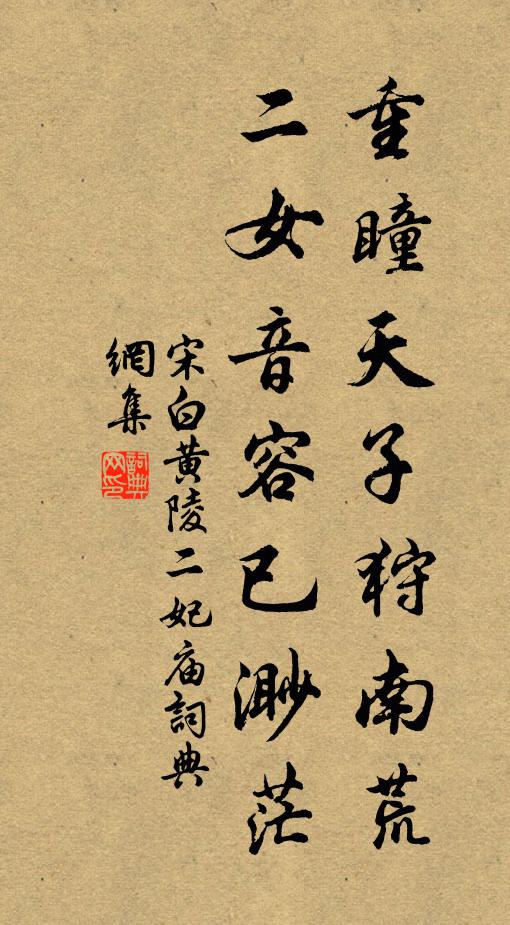 重瞳天子狩南荒
二女音容已渺茫
宋白黄陵二妃庙詞典
網集
詞典网印